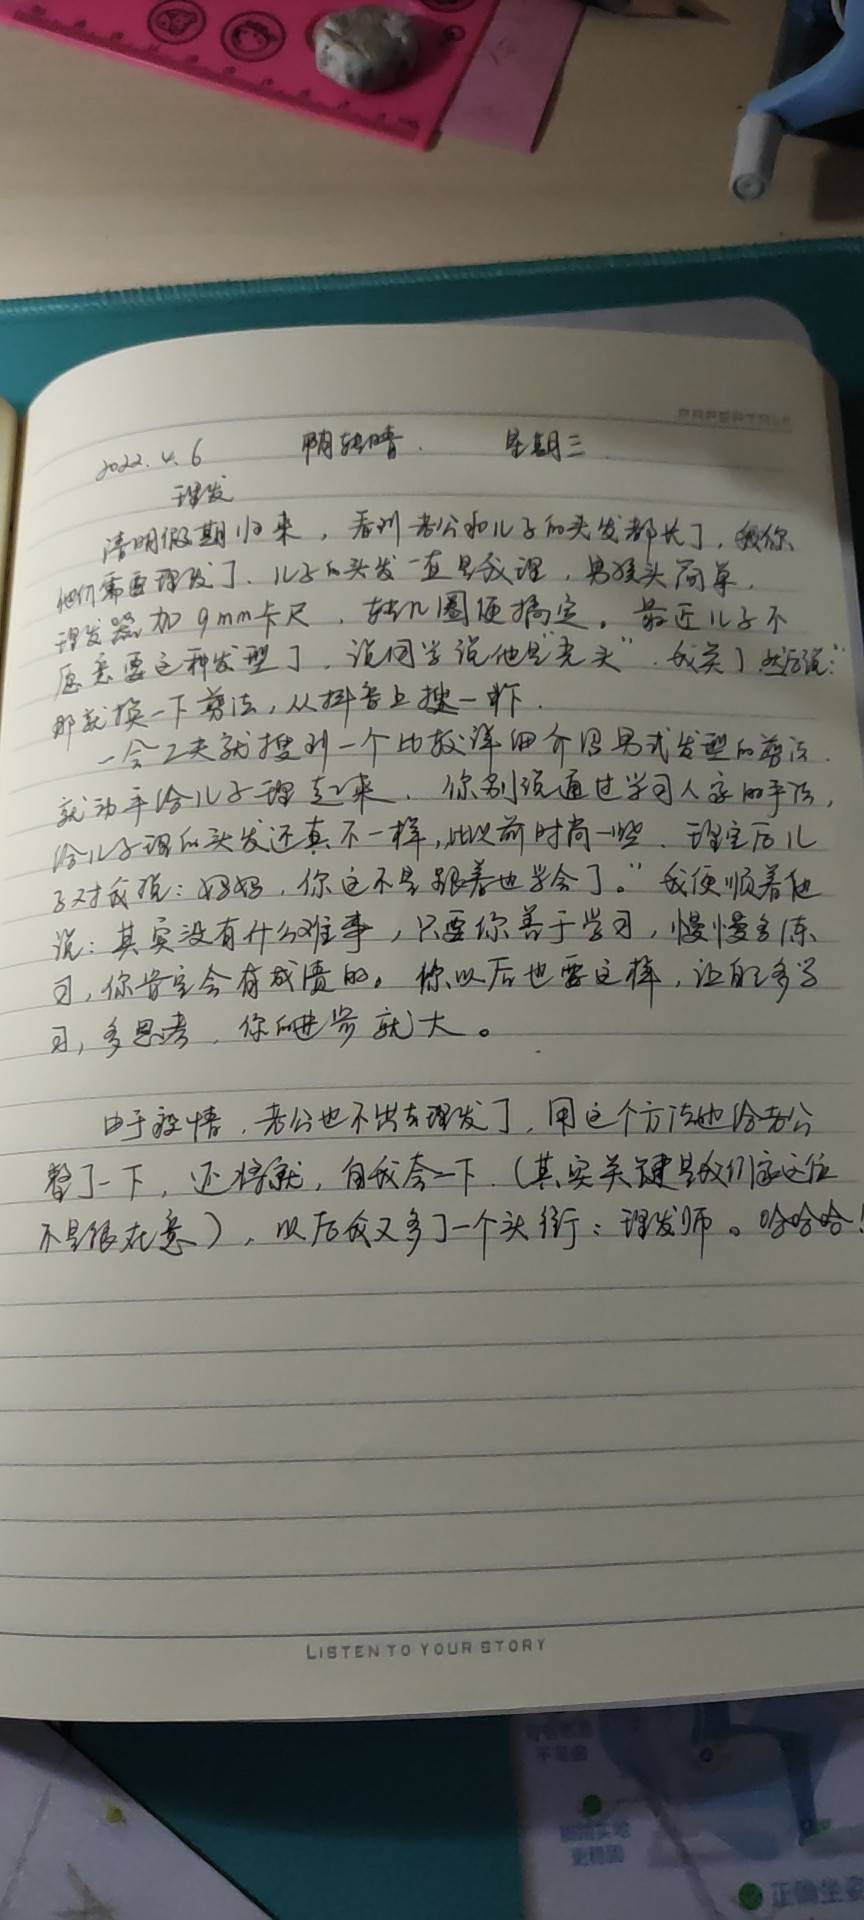 PAPERTALK
2022.4.6 阴转晴. 星期三
理发
清明假期归来，看到老公和儿子的头发都长了，我你
他们需要理发了.儿子的头发一直是我理，男孩头简单.
理发器加9mm卡尺，转几圈便搞定。最近儿子不
愿意要这种发型了，说同学说他是“光头”.我笑了然后说:“
那就换一下剪法，从抖音上搜一下.
一会工夫就搜到一个比较详细介绍男式发型的剪法.
就动手给儿子理起来.你别说通过学习人家的手法，
给儿子理的头发还真不一样，比以前时尚一些.理完后儿
子对我说：妈妈，你这不是跟着也学会了。”我便顺着他
说：其实没有什么难事，只要你善于学习，慢慢多练
习，你肯定会有成绩的。你以后也要这样，让自己多学
习，多思考，你的进步就大。
由于疫情，老公也不出去理发了，用这个方法也给老公
整了一下，还将就，自我夸一下.（其实关键是我们家这位
不是很在意），以后我又多了一个头衔：理发师。哈哈哈！
LISTEN TO YOUR STORY
正确坐姿